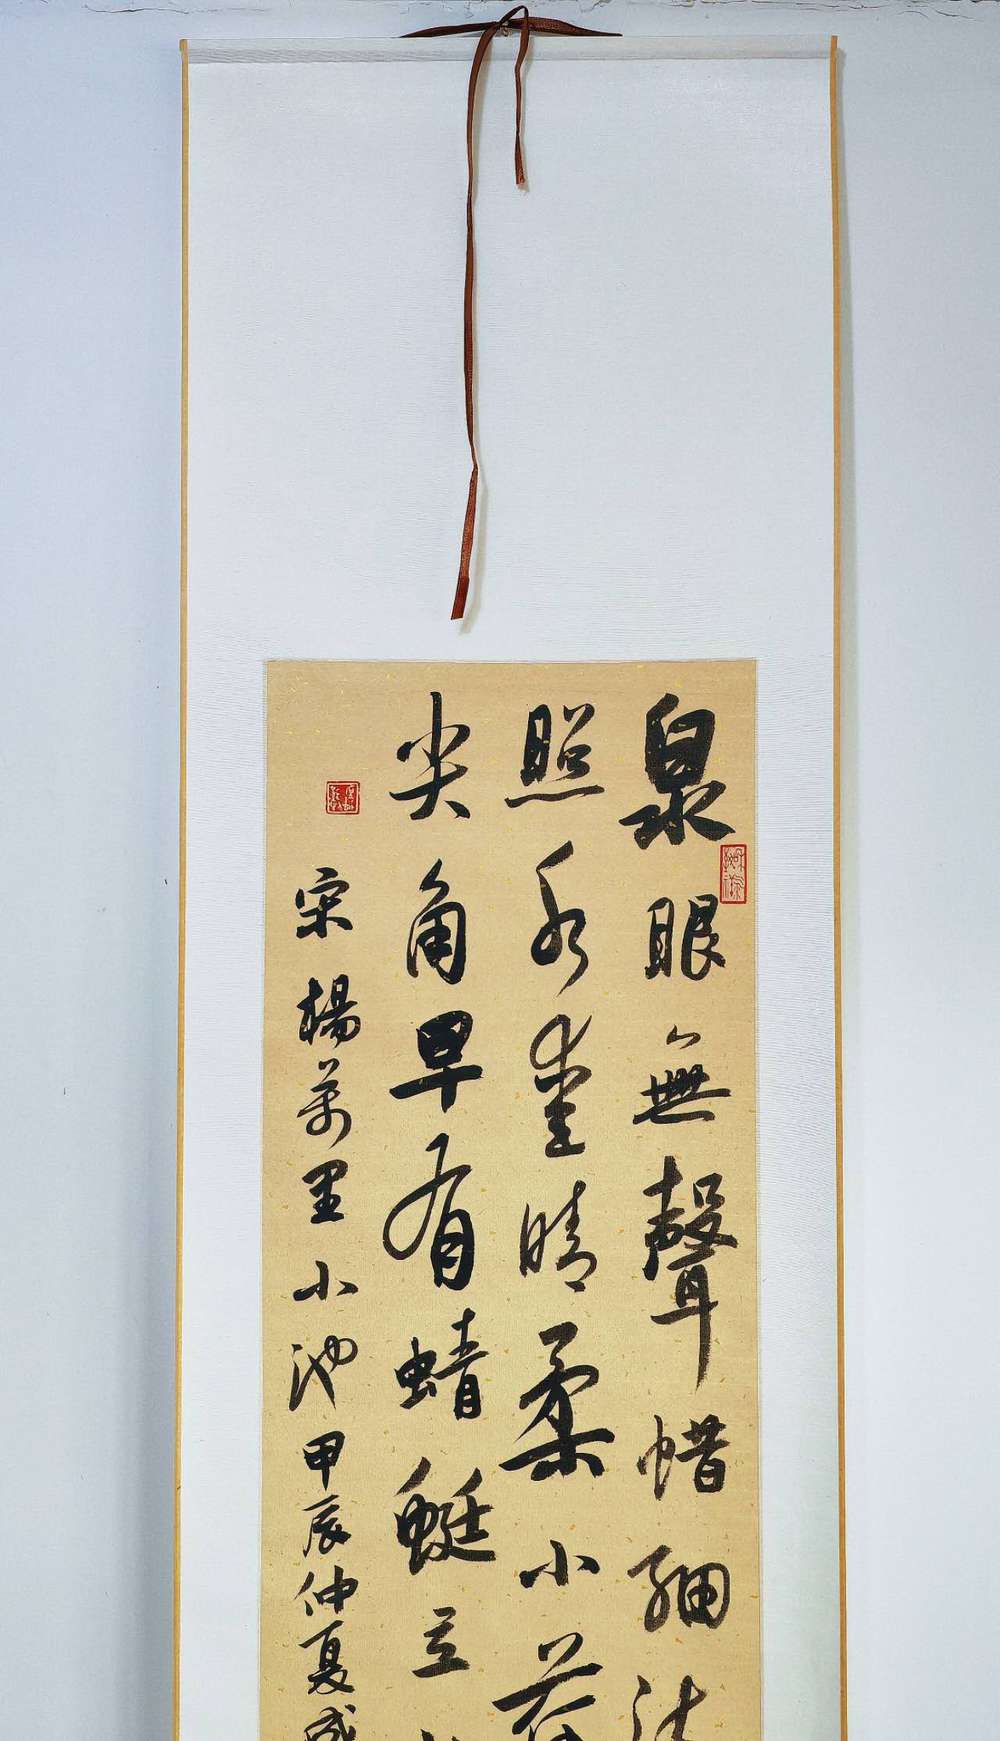 泉眼無聲惜細流
照水愛晴柔小荷
尖角早有蜻蜓立
宋楊萬里小池甲辰仲夏成